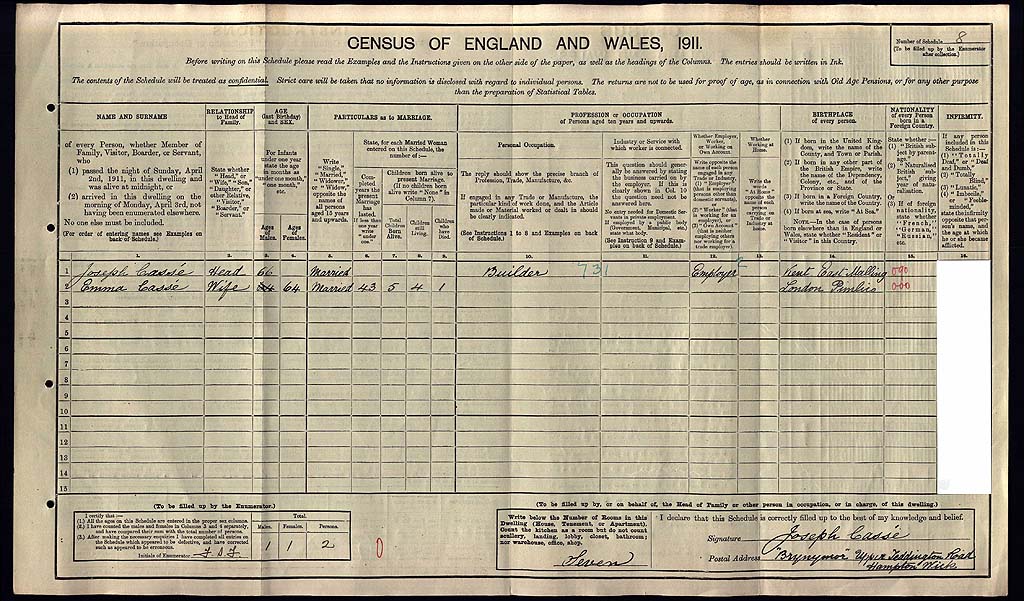 CENSUS OF ENGLAND AND WALES, 1911.
Number of Schedule 8
(To be filled up by the Enumerator
after collection.)
Before writing on this Schedule please read the Examples and the Instructions given on the other side of the paper, as well as the headings of the Columns. The entries should be written in Ink.
The contents of the Schedule will be treated as confidential. Strict care will be taken that no information is disclosed with regard to individual persons. The returns are not to be used for proof of age, as in connection with Old Age Pensions, or for any other purpose
than the preparation of Statistical Tables.
NAME AND SURNAME
of every Person, whether Member of
Family, Visitor, Boarder, or Servant,
who
(1) passed the night of Sunday, April
2nd, 1911, in this dwelling and
was alive at midnight, or
(2) arrived in this dwelling on the
morning of Monday, April 3rd, not
having been enumerated elsewhere.
No one else must be included.
(For order of entering names see Examples on
back of Schedule.)
RELATIONSHIP
to Head of
Family.
State whether
"Head," or
"Wife," "Son,"
"Daughter," or
other Relative,
"Visitor,"
"Boarder," or
"Servant."
AGE
(last Birthday)
and SEX.
For Infants
under one year
state the age
in months as
"under one month,"
"one month,"
etc.
Ages
of
Males.
Ages
of
Females.
PARTICULARS as to MARRIAGE.
Write
"Single,"
"Married,"
"Widower,"
or "Widow,"
opposite the
names of
all persons
aged 15 years
and upwards.
State, for each Married Woman
entered on this Schedule, the
number of:—
Completed
years the
present
Marriage
has
lasted.
If less than
one year
write
"under
one."
Children born alive to
present Marriage.
(If no children born
alive write "None" in
Column 7).
Total
Children
Born
Alive.
Children
still
Living.
Children
who
have
Died.
PROFESSION or OCCUPATION
of Persons aged ten years and upwards.
Personal Occupation.
The reply should show the precise branch of
Profession, Trade, Manufacture, &c.
If engaged in any Trade or Manufacture, the
particular kind of work done, and the Article
made or Material worked or dealt in should
be clearly indicated.
(See Instructions 1 to 8 and Examples on back
of Schedule.)
Industry or Service with
which worker is connected.
This question should generally
be answered by stating
the business carried on
by the employer. If this is
clearly shown in Col. 10
the question need not be
answered here.
No entry needed for Domestic Servants
in private employment.
If employed by a public body
(Government, Municipal, etc.)
state what body.
(See Instruction 9 and Examples
on back of Schedule.)
Whether Employer,
Worker,
or Working on
Own Account.
Whether
Working at
Home.
Write the
words
"At Home"
opposite the
name of each
person
carrying on
Trade or
Industry
at home.
BIRTHPLACE
of every person.
(1) If born in the United Kingdom,
write the name of the
County, and Town or Parish.
(2) If born in any other part of
the British Empire, write
the name of the Dependency,
Colony, etc., and of the
Province or State.
(3) If born in a Foreign Country,
write the name of the Country.
(4) If born at sea, write "At Sea."
NOTE.—In the case of persons
born elsewhere than in England or
Wales, state whether "Resident" or
"Visitor" in this Country.
NATIONALITY
of every Person
born in a
Foreign Country.
State whether:—
(1) "British subject
by parentage."
(2) "Naturalised
British subject,"
giving
year of naturalisation.
Or
(3) If of foreign
nationality,
state whether
"French,"
"German,"
"Russian,"
etc.
INFIRMITY.
1 Joseph Casse Head 66 Married Builder 731 Employer Kent East Malling 090
2 Emma Casse Wife 64 Married 43 5 4 1 London Pimlico 000
3
4
5
6
7
8
9
10
11
12
13
14
15
(To be filled up by the Enumerator.)
I certify that:—
(1.) All the ages on this Schedule are entered in the proper sex columns.
(2.) I have counted the males and females in Columns 3 and 4 separately,
and have compared their sum with the total number of persons.
(3.) After making the necessary enquiries I have completed all entries on
the Schedule which appeared to be defective, and have corrected
such as appeared to be erroneous.
Initials of Enumerator
Total.
Males. Females. Persons.
1 1 2
0
(To be filled up by, or on behalf of, the Head of Family or other person in occupation, or in charge, of this dwelling.)
Write below the Number of Rooms in this
Dwelling (House, Tenement, or Apartment).
Count the kitchen as a room but do not count
scullery, landing, lobby, closet, bathroom;
nor warehouse, office, shop.
Seven
I declare that this Schedule is correctly filled up to the best of my knowledge and belief.
Signature Joseph Casse
Postal Address "Brynymor" Upper Teddington Road
Hampton Wick